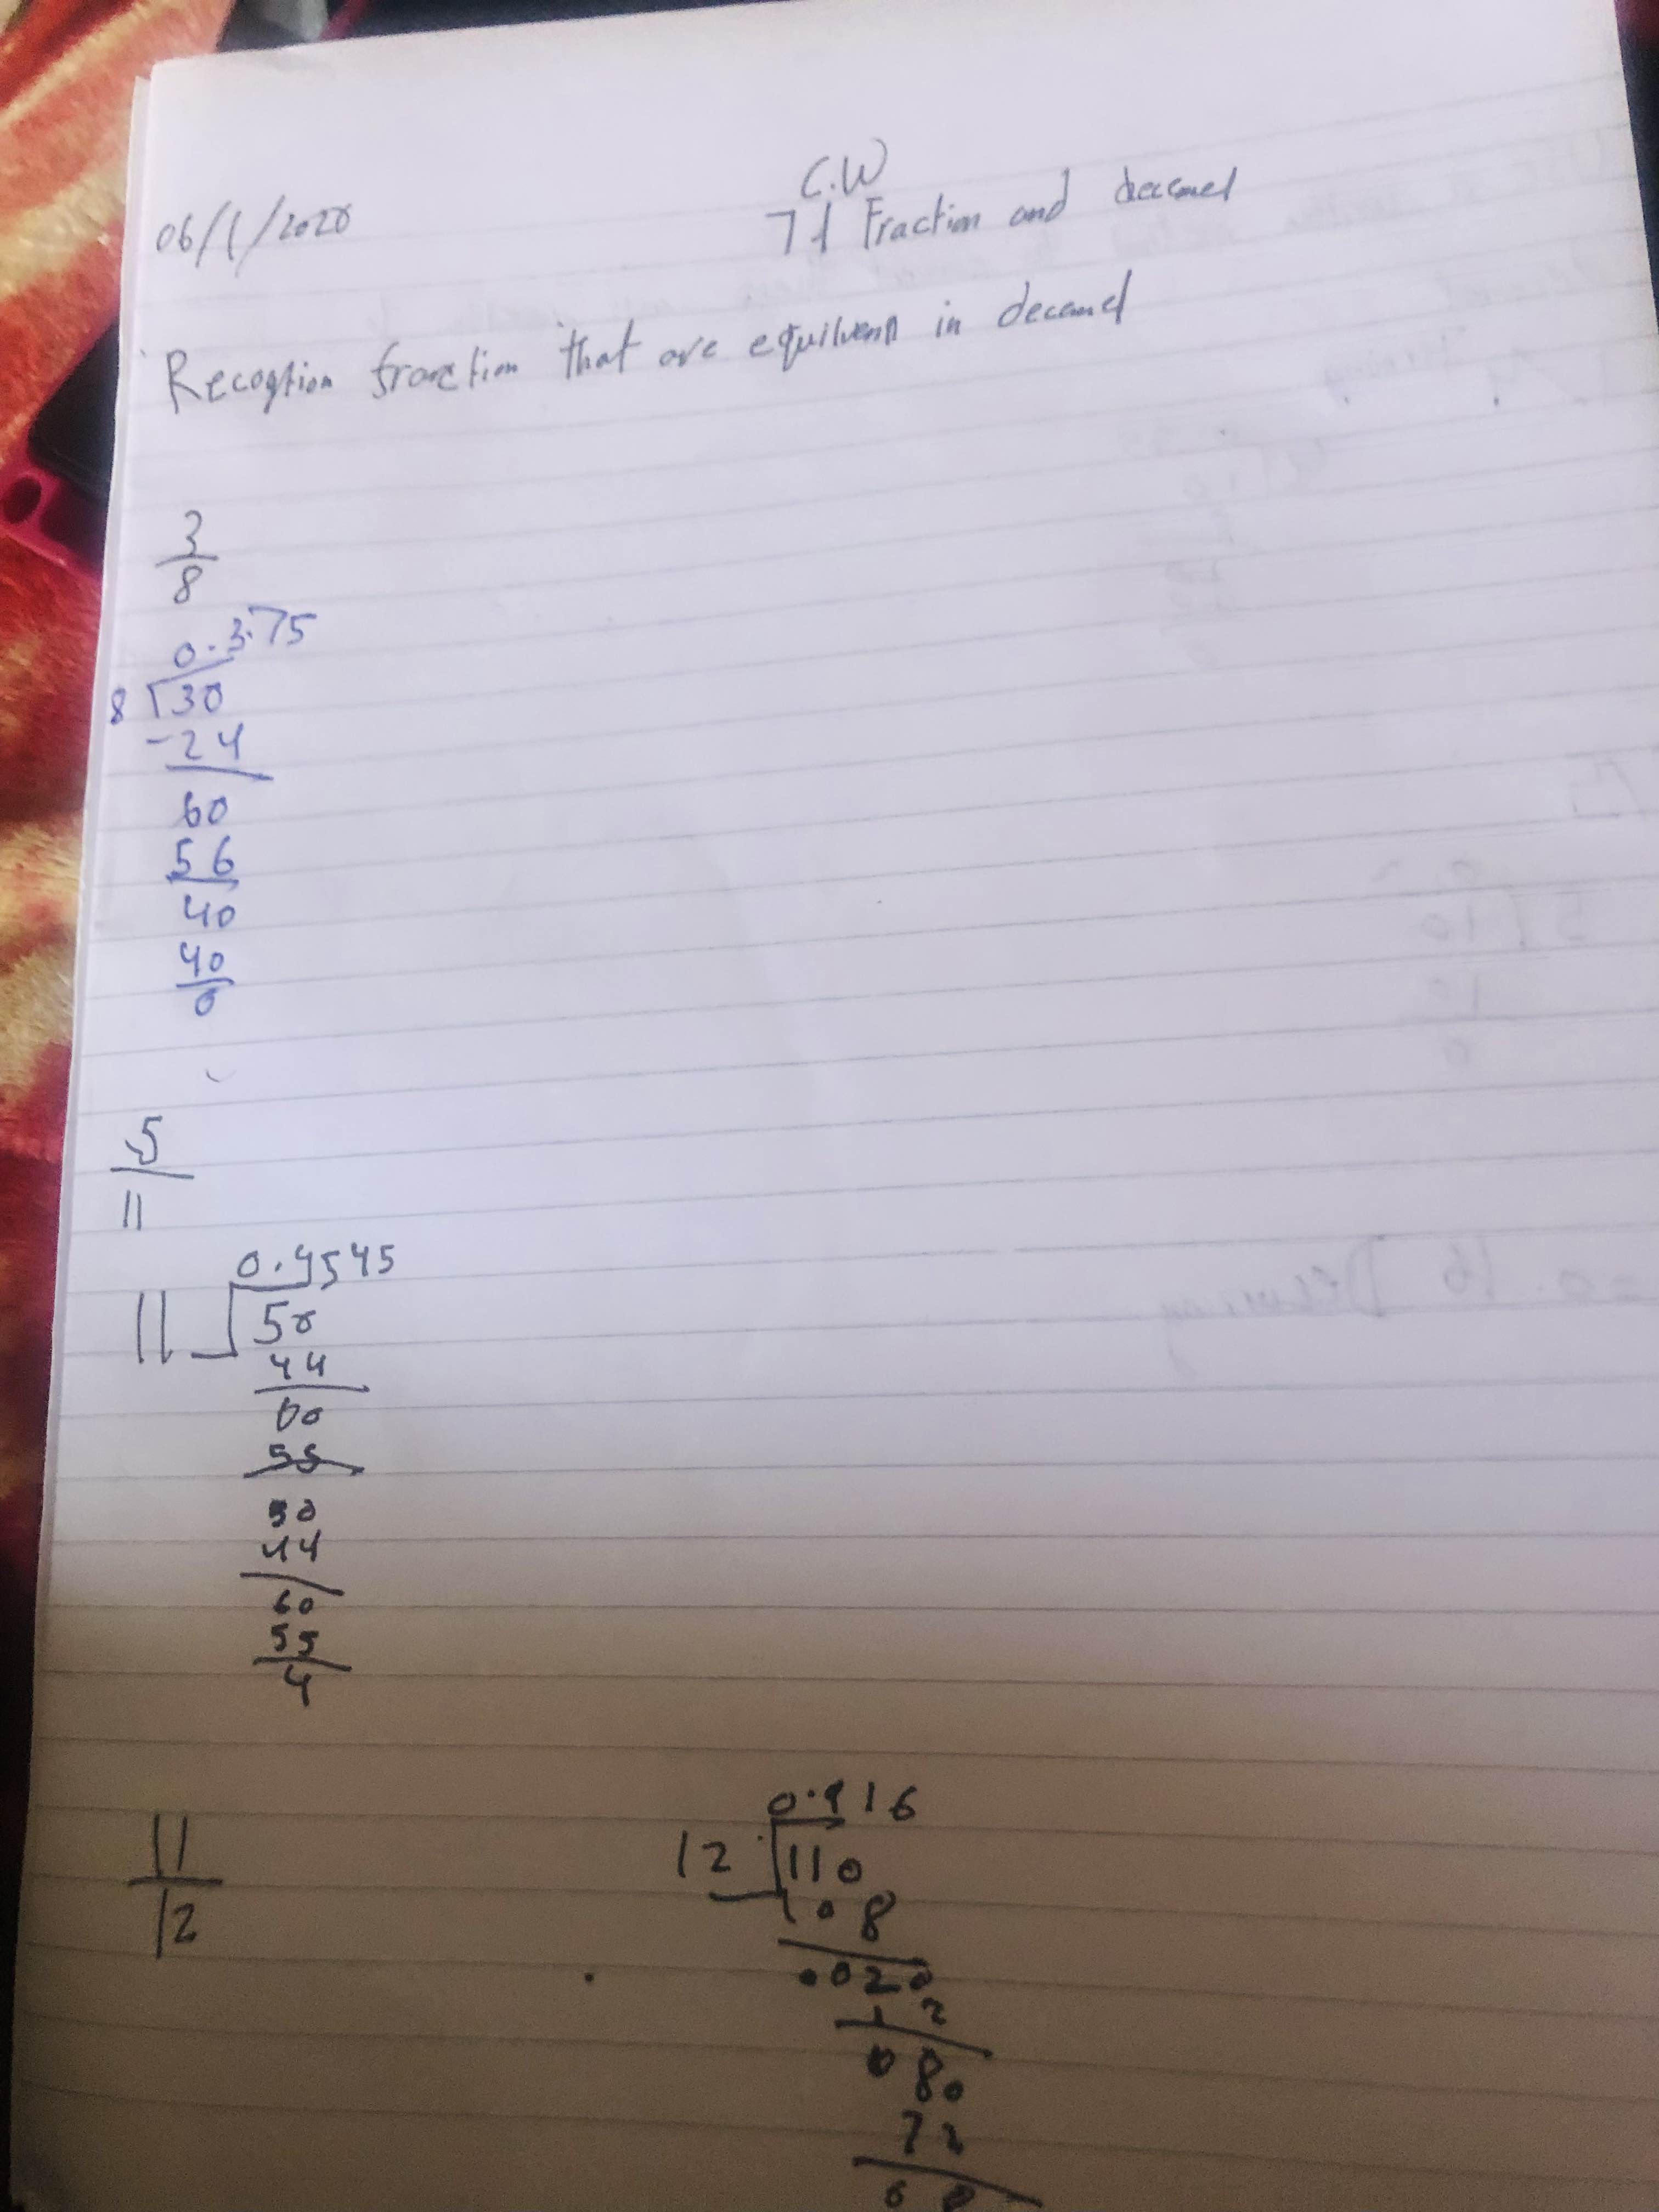 C.W
06/1/2020
71 Fraction and decemel
Recogtion fraection that are equilvent in decemel
3
8
0.375
8 30
-24
60
56
40
40
0
5
11
0.4545
11 50
44
60
55
50
44
60
55
4
11
12
0.916
12 110
108
020
12
080
72